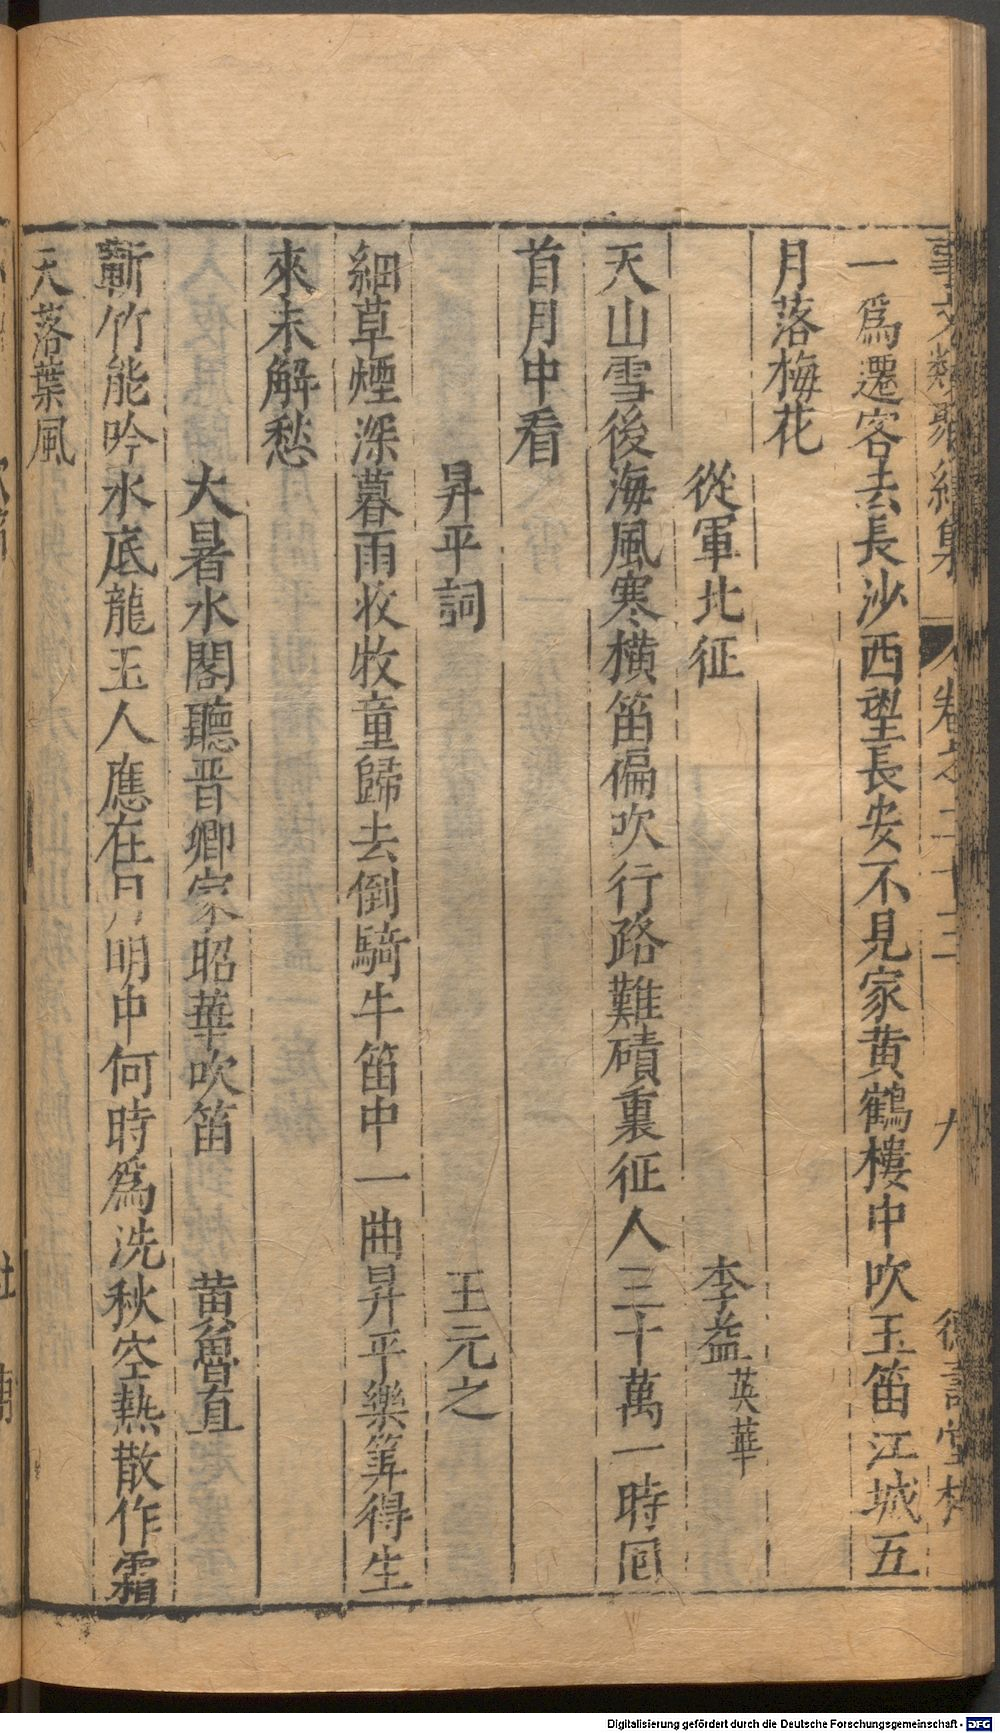 事文類聚續集 卷之二十三 九 德壽堂梓
一爲遷客去長沙西望長安不見家黃鶴樓中吹玉笛江城五
月落梅花
從軍北征 李益英華
天山雪後海風寒橫笛偏吹行路難磧裏征人三十萬一時囘
首月中看
昇平詞 王元之
細草煙深暮雨收牧童歸去倒騎牛笛中一曲昇平樂筭得生
來未解愁
大暑水閣聽晋卿家昭華吹笛 黃魯直
蘄竹能吟水底龍玉人應在月明中何時爲洗秋空熱散作霜
天落葉風
Digitalisierung gefördert durch die Deutsche Forschungsgemeinschaft - DFG